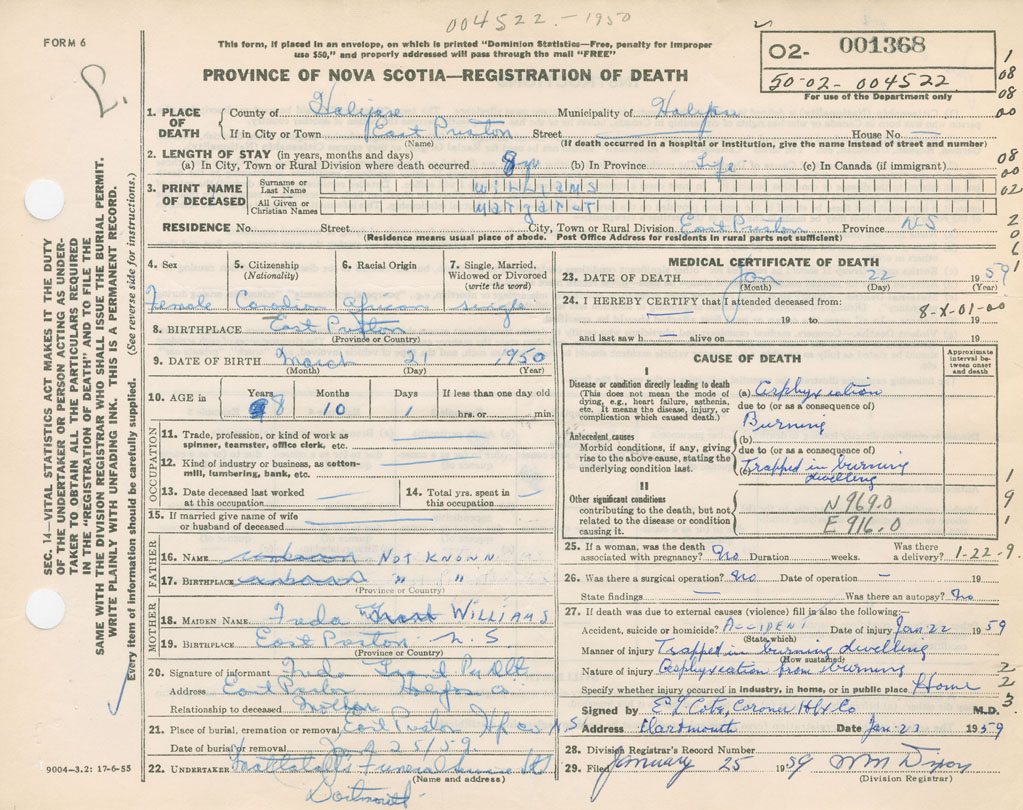 004522.-1950
FORM 6
This form, if placed in an envelope, on which is printed "Dominion Statistics—Free, penalty for improper
use $50," and properly addressed will pass through the mail "FREE"
PROVINCE OF NOVA SCOTIA—REGISTRATION OF DEATH
02- 001368
50-02-004522
For use of the Department only
1
08
08
00
08
00
02
2
0
6
1
1
9
1
2
2
3
SEC. 14—VITAL STATISTICS ACT MAKES IT THE DUTY
OF THE UNDERTAKER OR PERSON ACTING AS UNDER-
TAKER TO OBTAIN ALL THE PARTICULARS REQUIRED
IN THE "REGISTRATION OF DEATH" AND TO FILE THE
SAME WITH THE DIVISION REGISTRAR WHO SHALL ISSUE THE BURIAL PERMIT.
WRITE PLAINLY WITH UNFADING INK. THIS IS A PERMANENT RECORD.
Every item of information should be carefully supplied. (See reverse side for instructions.)
1. PLACE OF DEATH County of Halifax Municipality of Halifax
If in City or Town East Preston Street — House No. —
(Name) (If death occurred in a hospital or institution, give the name instead of street and number)
2. LENGTH OF STAY (in years, months and days)
(a) In City, Town or Rural Division where death occurred 8 yr (b) In Province Life (c) In Canada (if immigrant)
3. PRINT NAME OF DECEASED Surname or Last Name Williams
All Given or Christian Names Margaret
RESIDENCE No. Street City, Town or Rural Division East Preston Province N.S.
(Residence means usual place of abode. Post Office Address for residents in rural parts not sufficient)
4. Sex 5. Citizenship (Nationality) 6. Racial Origin 7. Single, Married, Widowed or Divorced (write the word)
Female Canadian African single
8. BIRTHPLACE East Preston
(Province or Country)
9. DATE OF BIRTH March 21 1950
(Month) (Day) (Year)
10. AGE in Years Months Days If less than one day old
8 10 1 hrs. or min.
OCCUPATION
11. Trade, profession, or kind of work as spinner, teamster, office clerk, etc. —
12. Kind of industry or business, as cotton-mill, lumbering, bank, etc. —
13. Date deceased last worked at this occupation — 14. Total yrs. spent in this occupation —
15. If married give name of wife or husband of deceased —
FATHER
16. NAME NOT KNOWN
17. BIRTHPLACE " "
(Province or Country)
MOTHER
18. MAIDEN NAME Freda WILLIAMS
19. BIRTHPLACE East Preston N.S
(Province or Country)
20. Signature of informant Freda
Address East Preston Halifax Co
Relationship to deceased Mother
21. Place of burial, cremation or removal East Preston Hfx Co N.S
Date of burial or removal Jan 25/59.
22. UNDERTAKER Funeral
(Name and address)
Dartmouth
9004-3.2: 17-6-55
MEDICAL CERTIFICATE OF DEATH
23. DATE OF DEATH Jan 22 1959
(Month) (Day) (Year)
24. I HEREBY CERTIFY that I attended deceased from:
— 19 to 19
8-X-01-00
and last saw h — alive on 19
CAUSE OF DEATH Approximate interval between onset and death
I
Disease or condition directly leading to death
(This does not mean the mode of dying, e.g., heart failure, asthenia, etc. It means the disease, injury, or complication which caused death.)
(a) Asphyxiation
due to (or as a consequence of)
Burning
Antecedent causes
Morbid conditions, if any, giving rise to the above cause, stating the underlying condition last.
(b)
due to (or as a consequence of)
(c) Trapped in burning
dwelling
II
Other significant conditions
contributing to the death, but not related to the disease or condition causing it.
N 969.0
E 916.0
25. If a woman, was the death associated with pregnancy? No Duration weeks. Was there a delivery?
1-22-9
26. Was there a surgical operation? No Date of operation — 19
State findings — Was there an autopsy? No
27. If death was due to external causes (violence) fill in also the following:—
Accident, suicide or homicide? ACCIDENT Date of injury Jan 22 1959
(State which)
Manner of injury Trapped in burning dwelling
(How sustained)
Nature of injury Asphyxeation from burning
Specify whether injury occurred in industry, in home, or in public place Home
Signed by Coroner Hfx Co M.D.
Address Dartmouth Date Jan 23 1959
28. Division Registrar's Record Number
29. Filed January 25 1959 Wm
(Division Registrar)